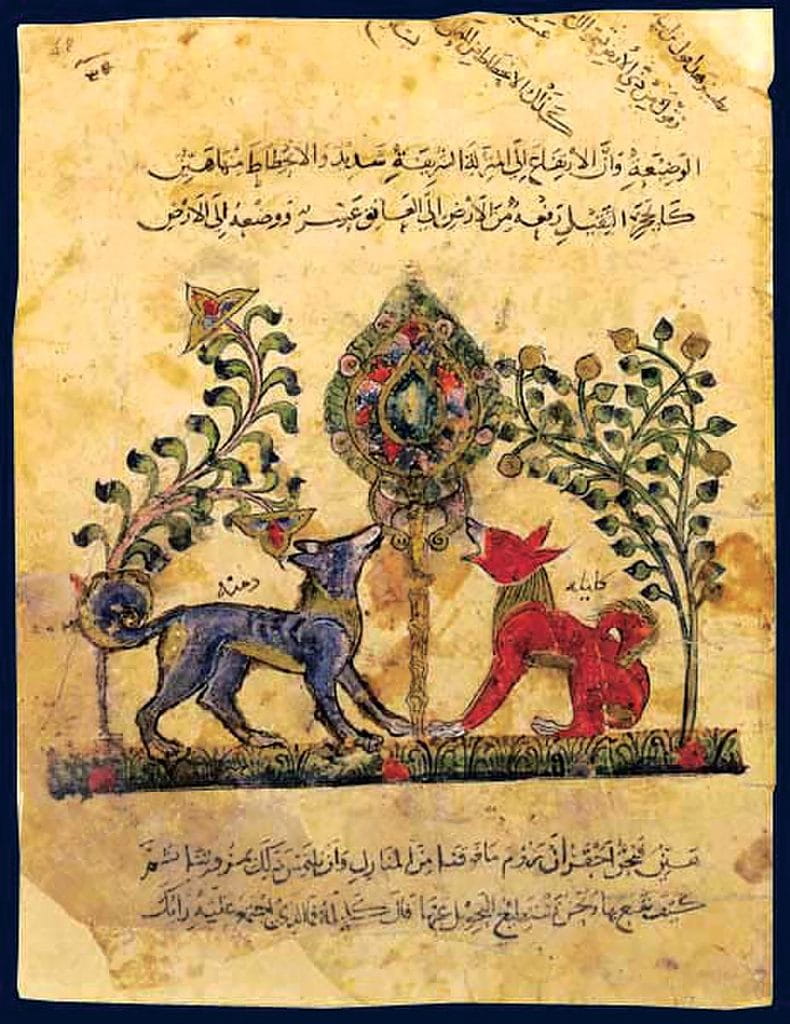 الوَضِيْعَةِ وَانَّ الارتفاعَ إلَى المنزلة الشريفةِ شَديد والانحطاط منهاهَيّن
كالحجر الثقيل رَفعهُ مِنَ الأرض إلى العاتق عَسرٌ ووضعهُ إلى الارض
دمنه
كليله
هين فنحنُ احق ان نروم ما فوقنا من المنازل وان نلتمس ذلك بمروتنا ثم
كيف نقنع بها ونحن نستطيع التحويل عنها قال كليلة فما الذي اجتمع عليه رايك